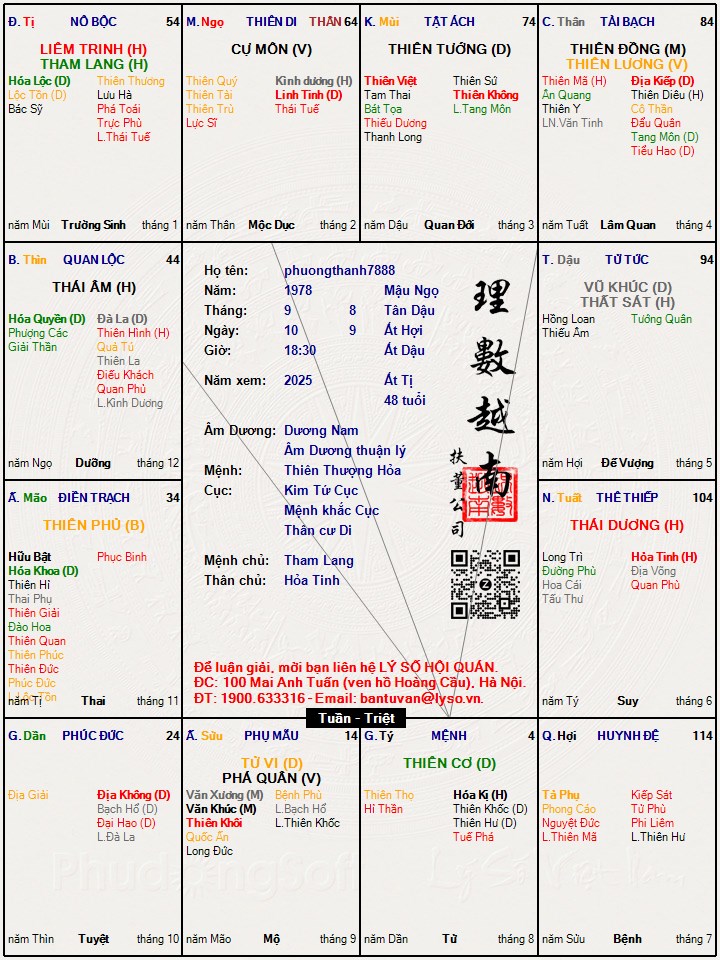 Đ. Tị NÔ BỘC 54
LIÊM TRINH (H)
THAM LANG (H)
Hóa Lộc (D) Thiên Thương
Lộc Tồn (D) Lưu Hà
Bác Sỹ Phá Toái
Trực Phù
L.Thái Tuế
năm Mùi Trường Sinh tháng 1
M. Ngọ THIÊN DI THÂN 64
CỰ MÔN (V)
Thiên Quý Kình dương (H)
Thiên Tài Linh Tinh (D)
Thiên Trù Thái Tuế
Lực Sĩ
năm Thân Mộc Dục tháng 2
K. Mùi TẬT ÁCH 74
THIÊN TƯỚNG (D)
Thiên Việt Thiên Sứ
Tam Thai Thiên Không
Bát Tọa L.Tang Môn
Thiếu Dương
Thanh Long
năm Dậu Quan Đới tháng 3
C. Thân TÀI BẠCH 84
THIÊN ĐỒNG (M)
THIÊN LƯƠNG (V)
Thiên Mã (H) Địa Kiếp (D)
Ân Quang Thiên Diêu (H)
Thiên Y Cô Thần
LN.Văn Tinh Đẩu Quân
Tang Môn (D)
Tiểu Hao (D)
năm Tuất Lâm Quan tháng 4
B. Thìn QUAN LỘC 44
THÁI ÂM (H)
Hóa Quyền (D) Đà La (D)
Phượng Các Thiên Hình (H)
Giải Thần Quả Tú
Thiên La
Điếu Khách
Quan Phủ
L.Kình Dương
năm Ngọ Dưỡng tháng 12
Họ tên: phuongthanh7888
Năm: 1978 Mậu Ngọ
Tháng: 9 8 Tân Dậu
Ngày: 10 9 Ất Hợi
Giờ: 18:30 Ất Dậu
Năm xem: 2025 Ất Tị
48 tuổi
Âm Dương: Dương Nam
Âm Dương thuận lý
Mệnh: Thiên Thượng Hỏa
Cục: Kim Tứ Cục
Mệnh khắc Cục
Thân cư Di
Mệnh chủ: Tham Lang
Thân chủ: Hỏa Tinh
理數越南
扶董公司
Để luận giải, mời bạn liên hệ LÝ SỐ HỘI QUÁN.
ĐC: 100 Mai Anh Tuấn (ven hồ Hoàng Cầu), Hà Nội.
ĐT: 1900.633316 - Email: bantuvan@lyso.vn.
Tuần - Triệt
T. Dậu TỬ TỨC 94
VŨ KHÚC (D)
THẤT SÁT (H)
Hồng Loan Tướng Quân
Thiếu Âm
năm Hợi Đế Vượng tháng 5
Ấ. Mão ĐIỀN TRẠCH 34
THIÊN PHỦ (B)
Hữu Bật Phục Binh
Hóa Khoa (D)
Thiên Hỉ
Thai Phụ
Thiên Giải
Đào Hoa
Thiên Quan
Thiên Phúc
Thiên Đức
Phúc Đức
L.Lộc Tồn
năm Tị Thai tháng 11
N. Tuất THÊ THIẾP 104
THÁI DƯƠNG (H)
Long Trì Hỏa Tinh (H)
Đường Phù Địa Võng
Hoa Cái Quan Phù
Tấu Thư
năm Tý Suy tháng 6
G. Dần PHÚC ĐỨC 24
Địa Giải Địa Không (D)
Bạch Hổ (D)
Đại Hao (D)
L.Đà La
năm Thìn Tuyệt tháng 10
Ấ. Sửu PHỤ MẪU 14
TỬ VI (D)
PHÁ QUÂN (V)
Văn Xương (M) Bệnh Phù
Văn Khúc (M) L.Bạch Hổ
Thiên Khôi L.Thiên Khốc
Quốc Ấn
Long Đức
năm Mão Mộ tháng 9
G. Tý MỆNH 4
THIÊN CƠ (D)
Thiên Thọ Hóa Kị (H)
Hỉ Thần Thiên Khốc (D)
Thiên Hư (D)
Tuế Phá
năm Dần Tử tháng 8
Q. Hợi HUYNH ĐỆ 114
Tả Phụ Kiếp Sát
Phong Cáo Tử Phù
Nguyệt Đức Phi Liêm
L.Thiên Mã L.Thiên Hư
năm Sửu Bệnh tháng 7